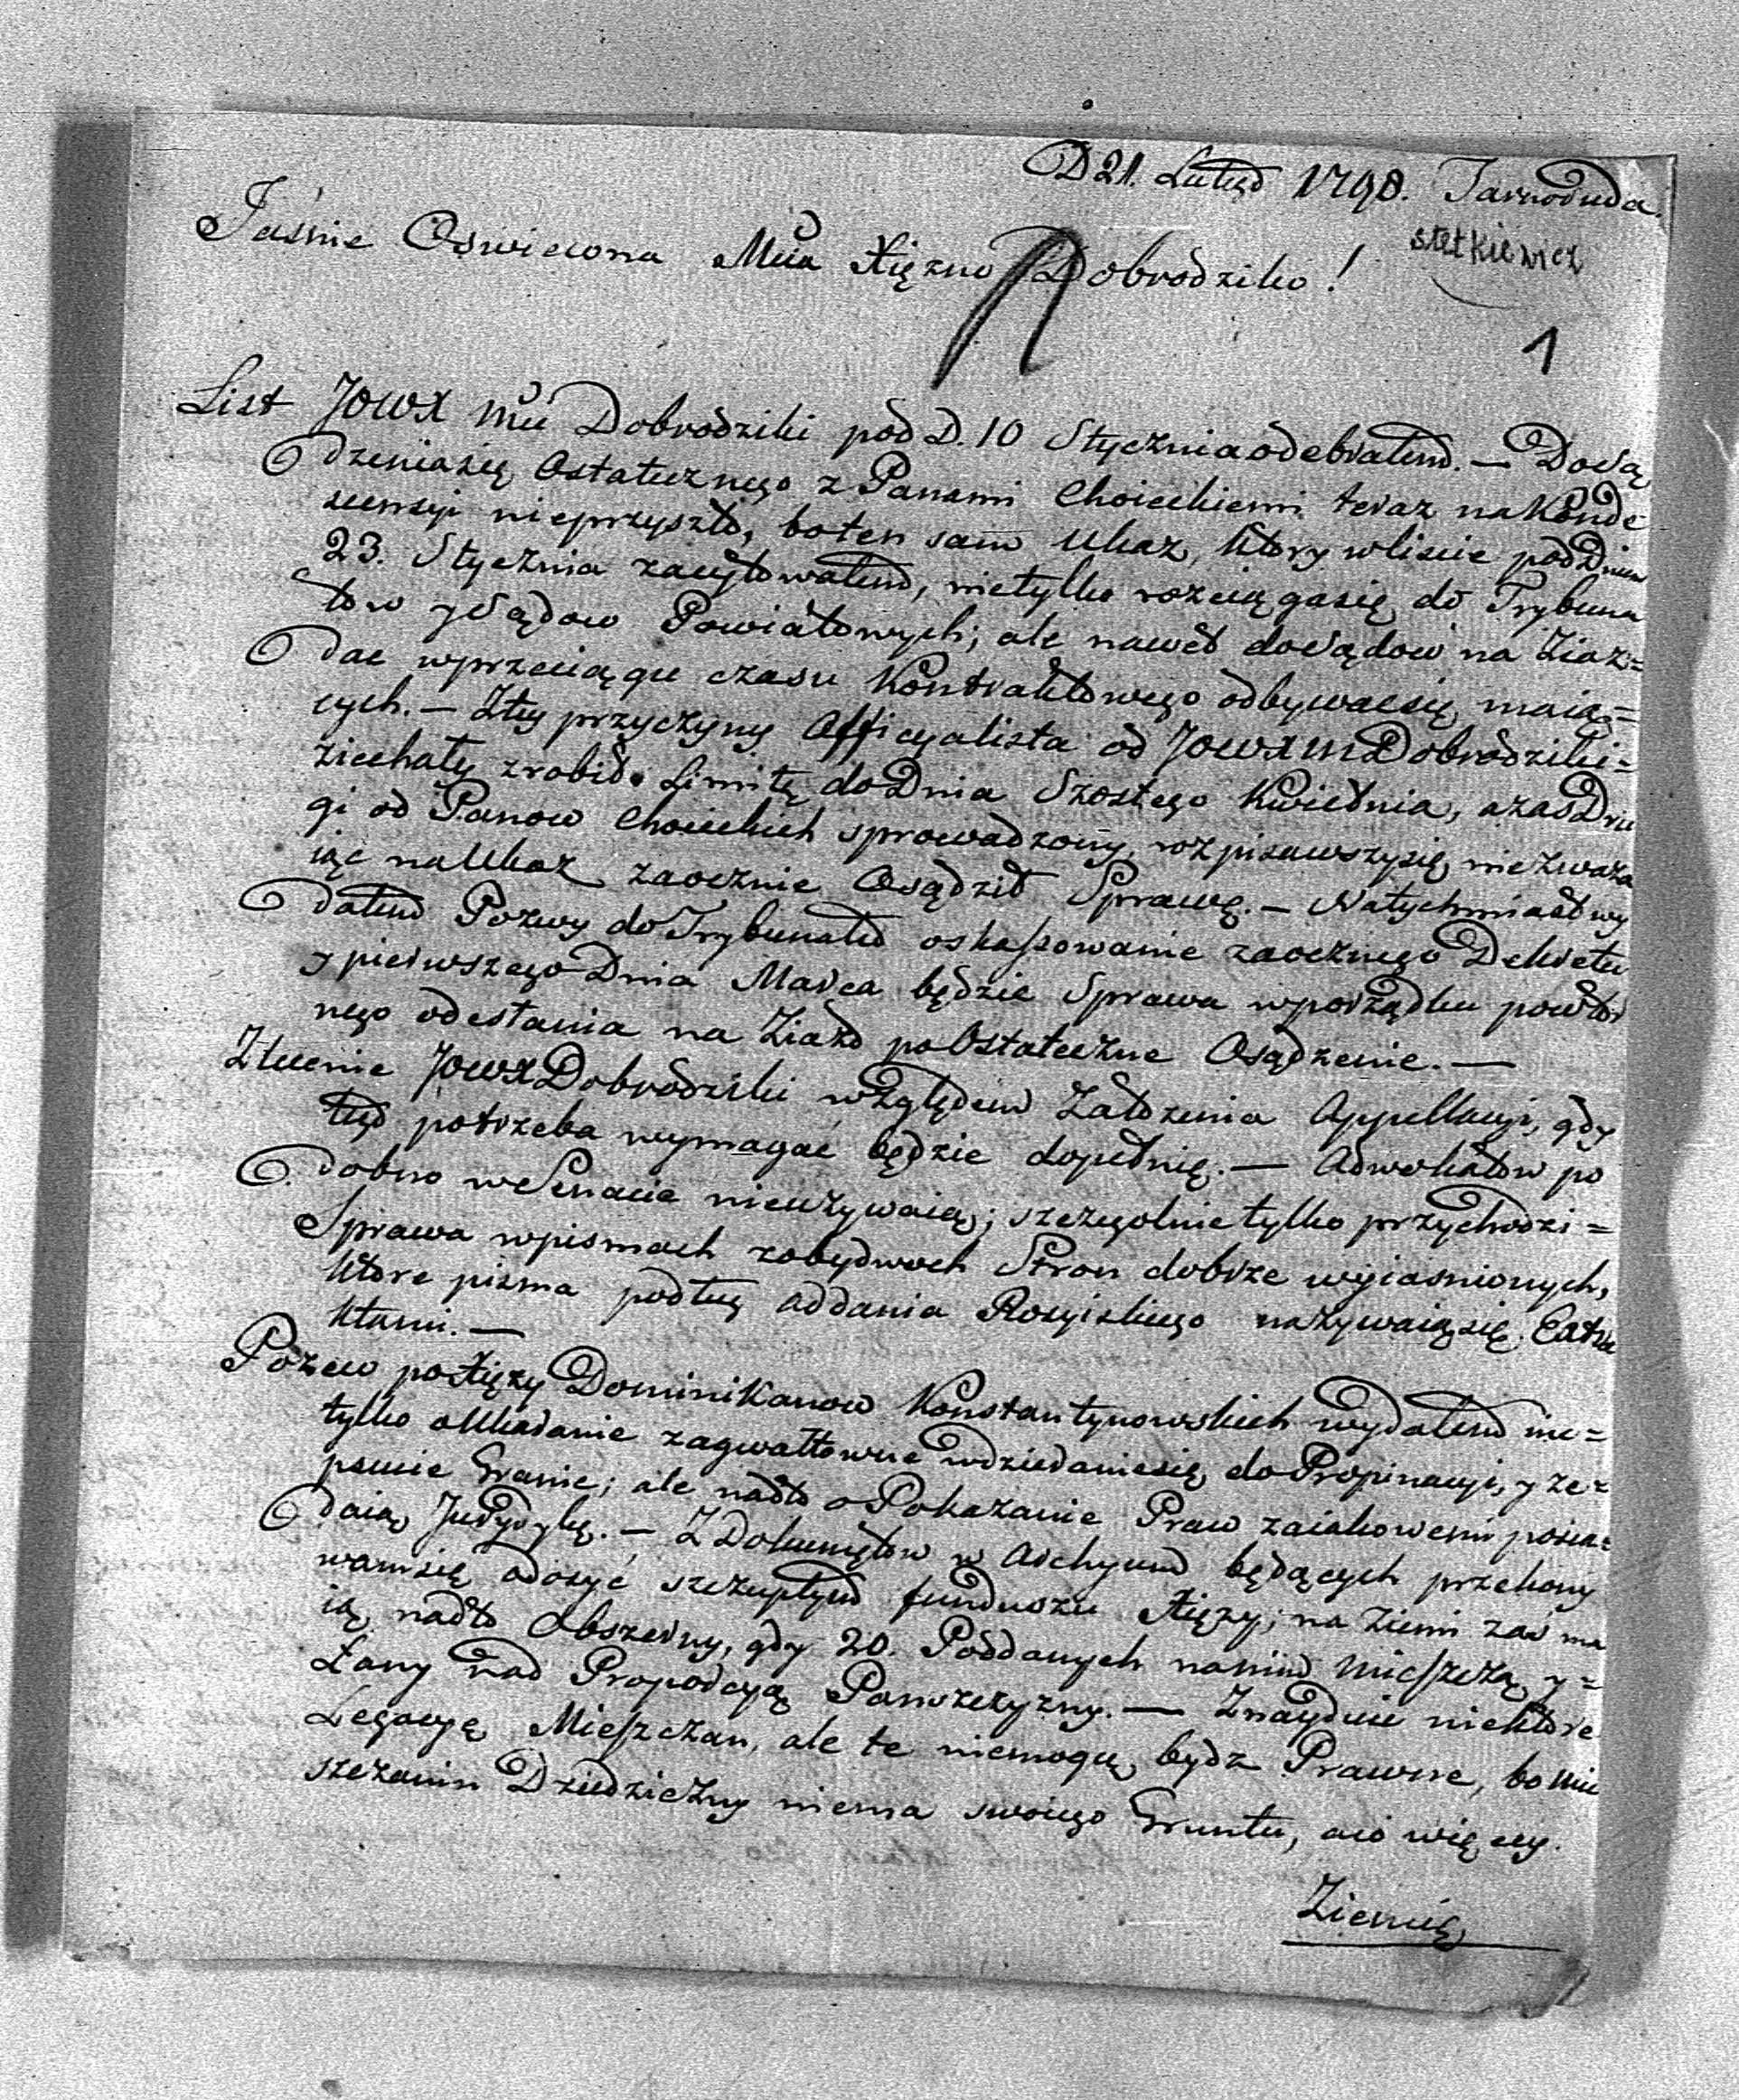 D 21. Lutego 1798. Tarnoruda.
Stetkiewicz
Jaśnie Oswiecona Mcia Xiężno Dobrodziko!
1
List JOWX Mci Dobrodziki pod D. 10 Stycznia odebrałem. — Do Są
dzenia się Ostatecznego z Panami Choieckiemi teraz na Konde
scensyi nieprzyszło, bo ten sam Ukaz, ktory w liscie pod Dniem
23. Stycznia zacytowałem, nietylko rozciąga się do Trybuna
łow y Sądow Powiatowych; ale nawet do Sądow na Ziaz=
dac w przeciągu czasu Kontraktowego odbywac się maią=
cych. — Z tey przyczyny Officyalista od JOWX M Dobrodziki=
ziechały zrobił Limitę do Dnia Szostego Kwietnia, a zas Dru
gi od Panow Choieckich sprowadzony, rozpisawszy się, nie zwaza
iąc na Ukaz zaocznie Osądził Sprawę. — Natychmiast wy
dałem Pozwy do Trybunału o skassowanie zaocznego Dekretu
y pierwszego Dnia Marca będzie Sprawa w porządku powtor
nego odesłania na Ziazd po Ostateczne Osądzenie. —
Zlecenie JOWX Dobrodziki względem Załozenia Appellacyi, gdy
tego potrzeba wymagać będzie dopełnię. — Adwokatow po
dobno w Senacie nieuzywaią; szczegolnie tylko przychodzi=
Sprawa w pismach z obydwoch Stron dobrze wyiasnionych,
ktore pisma podług addania Rosyiskiego nazywaią się Extra
ktami. —
Pozew po Xięzy Dominikanow Konstantynowskich wydałem nie=
tylko o Ukaranie za gwałtowne wdzieranie się do Propinacyi, y ze=
psucie Granic; ale nadto o Pokazanie Praw za iakowemi posia=
daią Jurydykę. — Z Dokumętow w Archywum będących przekony
wam się o dosyć szczupłym funduszu Xięzy; na ziemi zaś ma
ią nadto Obszerny, gdy 20. Poddanych na nim mieszczą y=
Łany nad Proporcyą Panszczyzny. — Znayduie niektore
Legacyę Mieszczan, ale te niemogą bydz Prawne, bo Mie
szczanin Dziedziczny niema swoiego Gruntu, a co więcey.
Ziemię